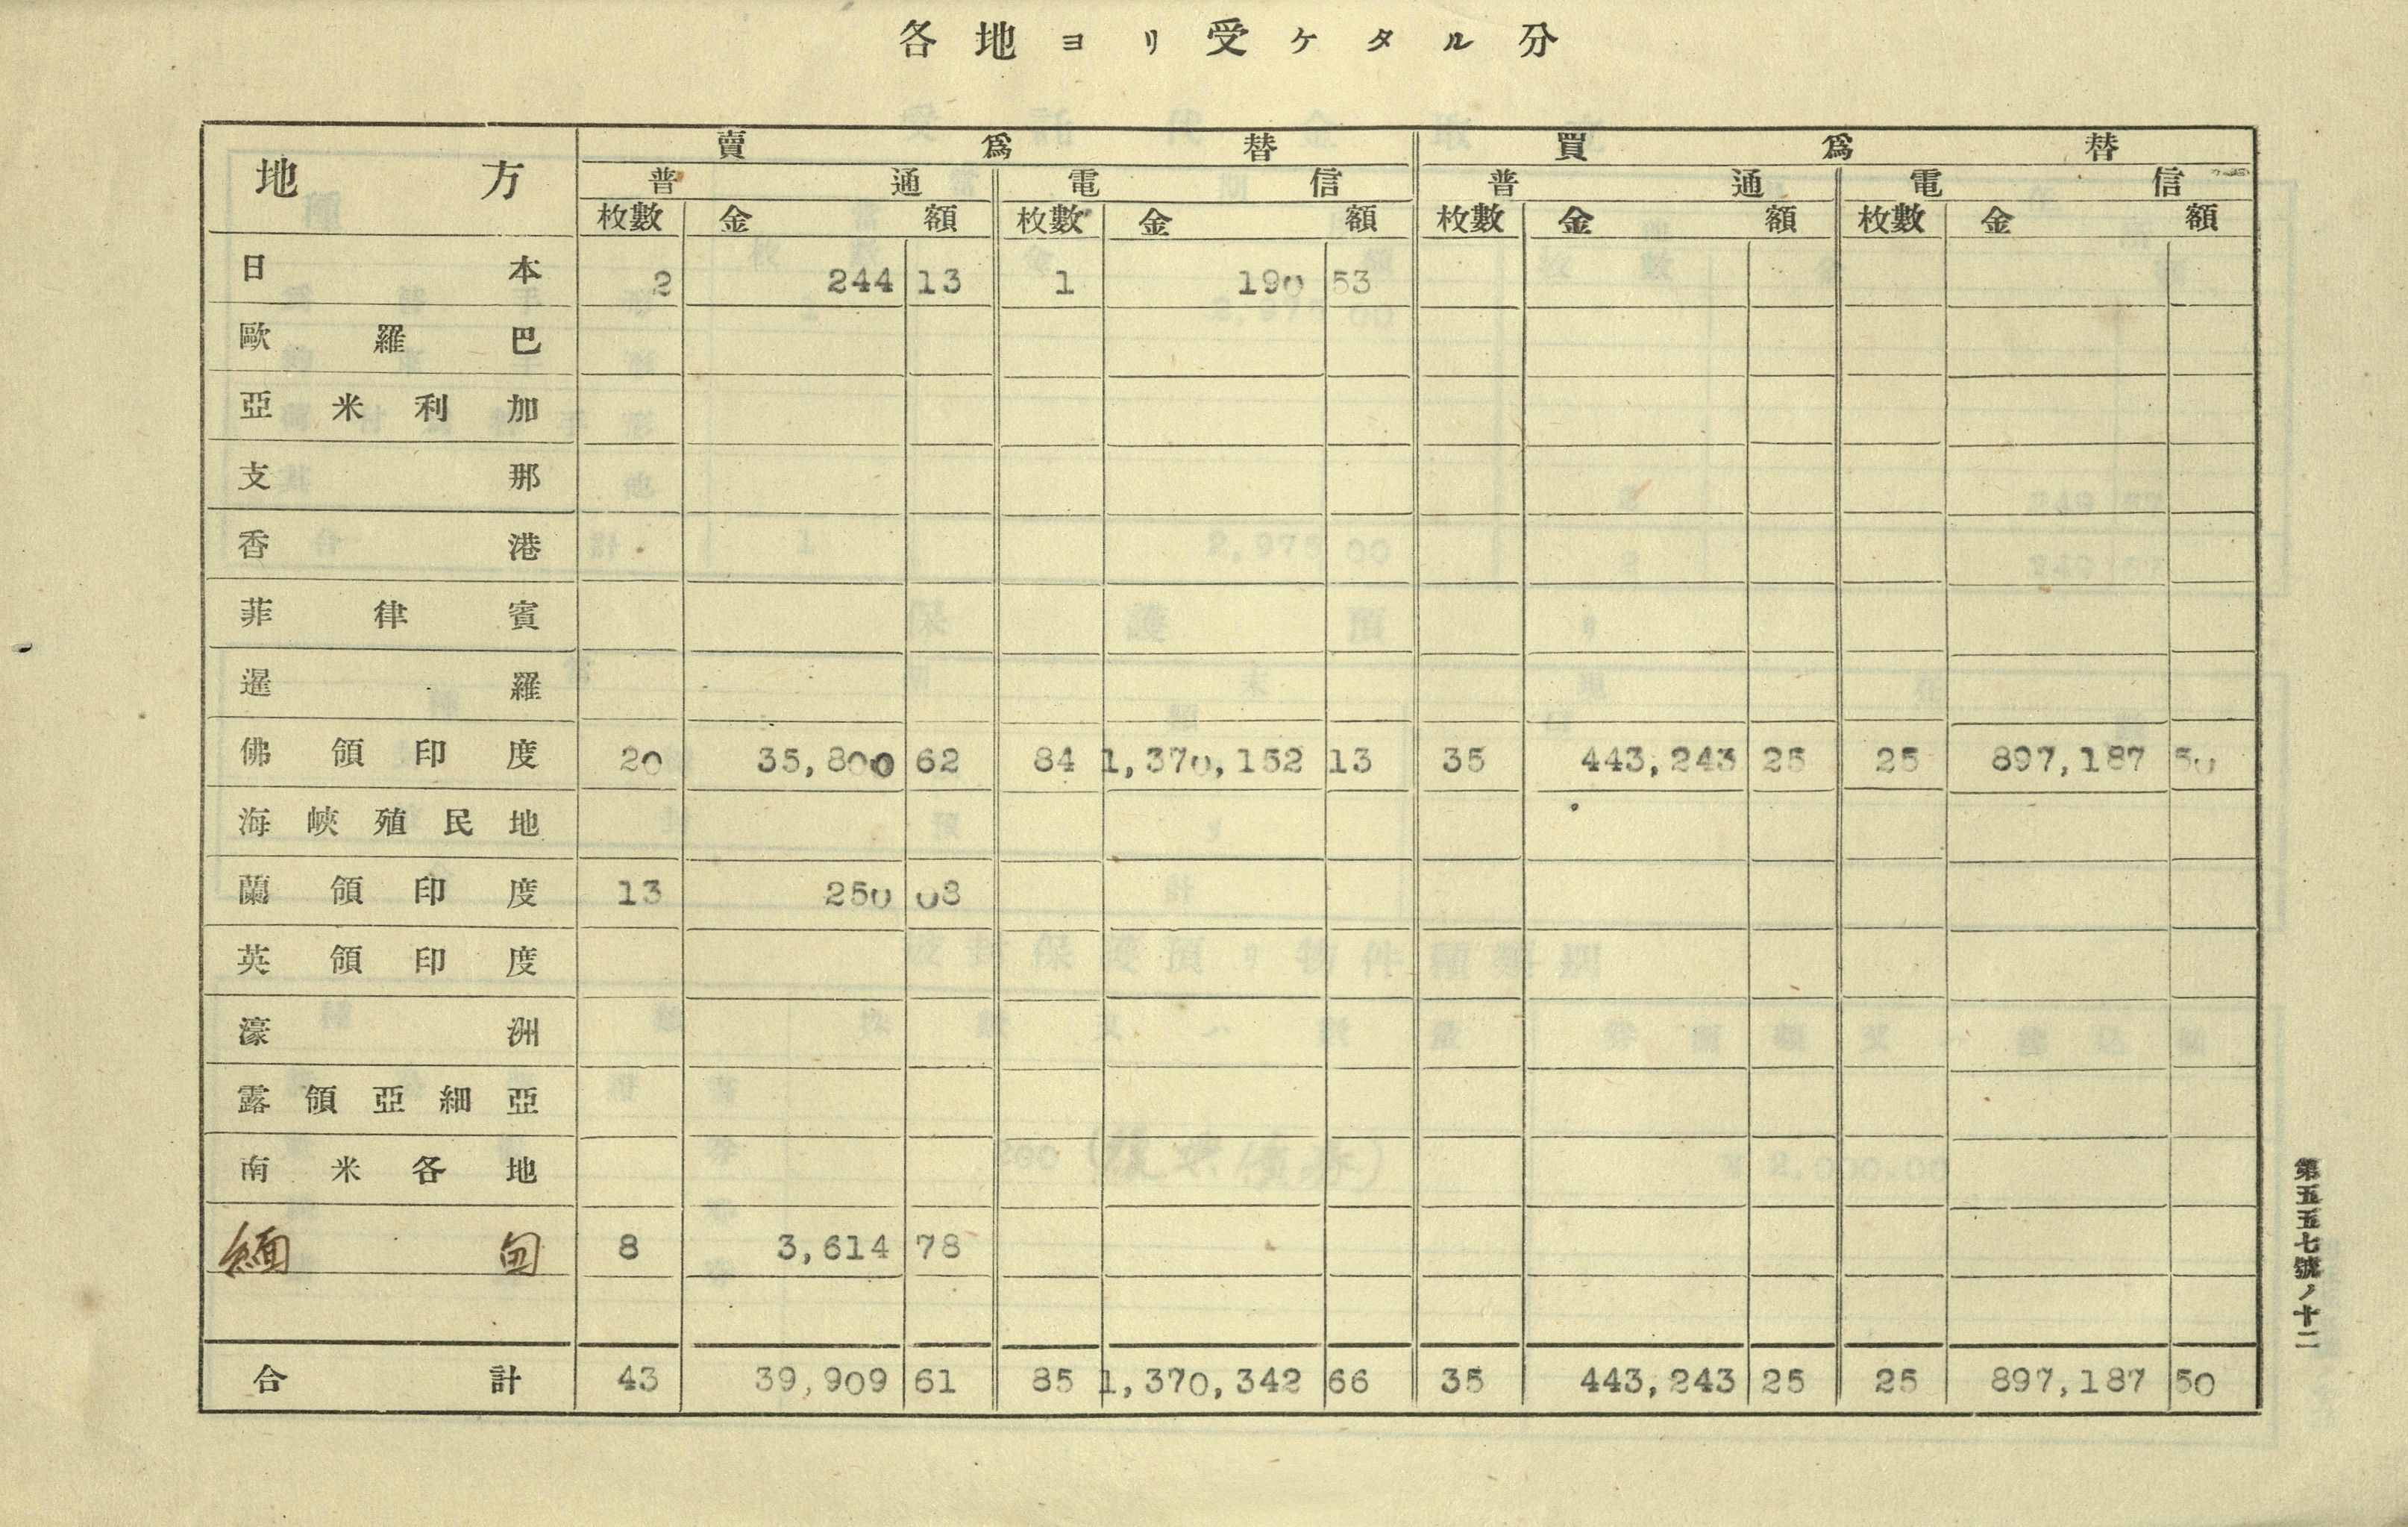 各地ヨリ受ケタル分
地方 賣爲替 買爲替
普通 電信 普通 電信
枚數 金額 枚數 金額 枚數 金額 枚數 金額
日本 2 244 13 1 190 53
歐羅巴
亞米利加
支那
香港
菲律賓
暹羅
佛領印度 20 35,800 62 84 1,370,152 13 35 443,243 25 25 897,187 50
海峽殖民地
蘭領印度 13 250 08
英領印度
濠洲
露領亞細亞
南米各地
緬甸 8 3,614 78
合計 43 39,909 61 85 1,370,342 66 35 443,243 25 25 897,187 50
第五五七號ノ十二